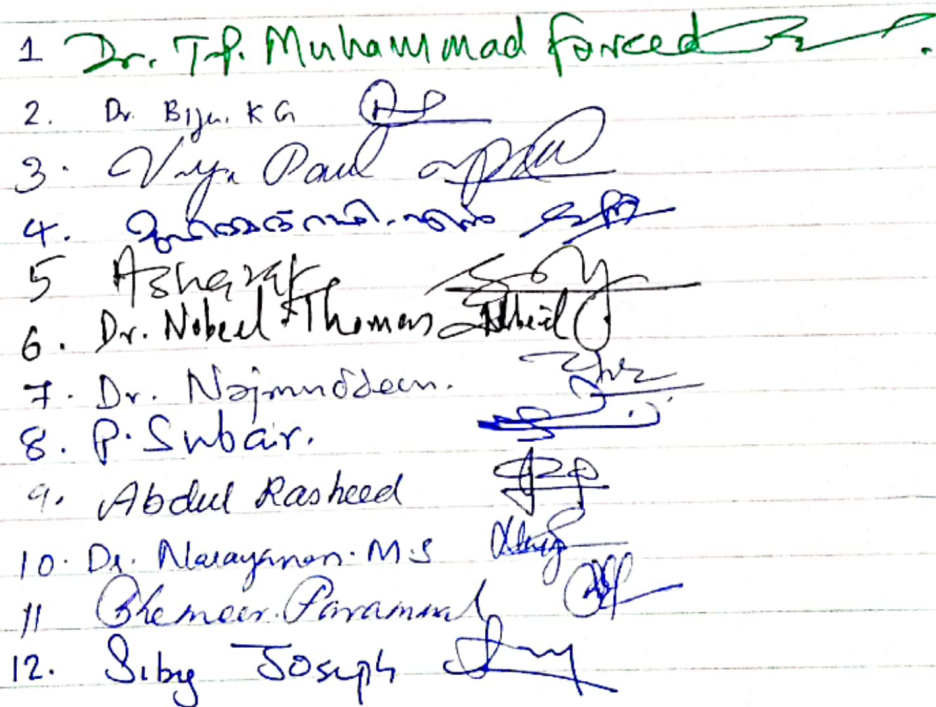 1 Dr. T.P. Muhammad Fareed
2. Dr. Biju. K G
3. Vijy Paul
4.
5 Asharaf
6. Dr. Nobeel Thomas
7. Dr. Najmuddeen.
8. P. Subair.
9. Abdul Rasheed
10. Dr. Narayanan. M.S
11 Shemeer. Parammal
12. Siby Joseph